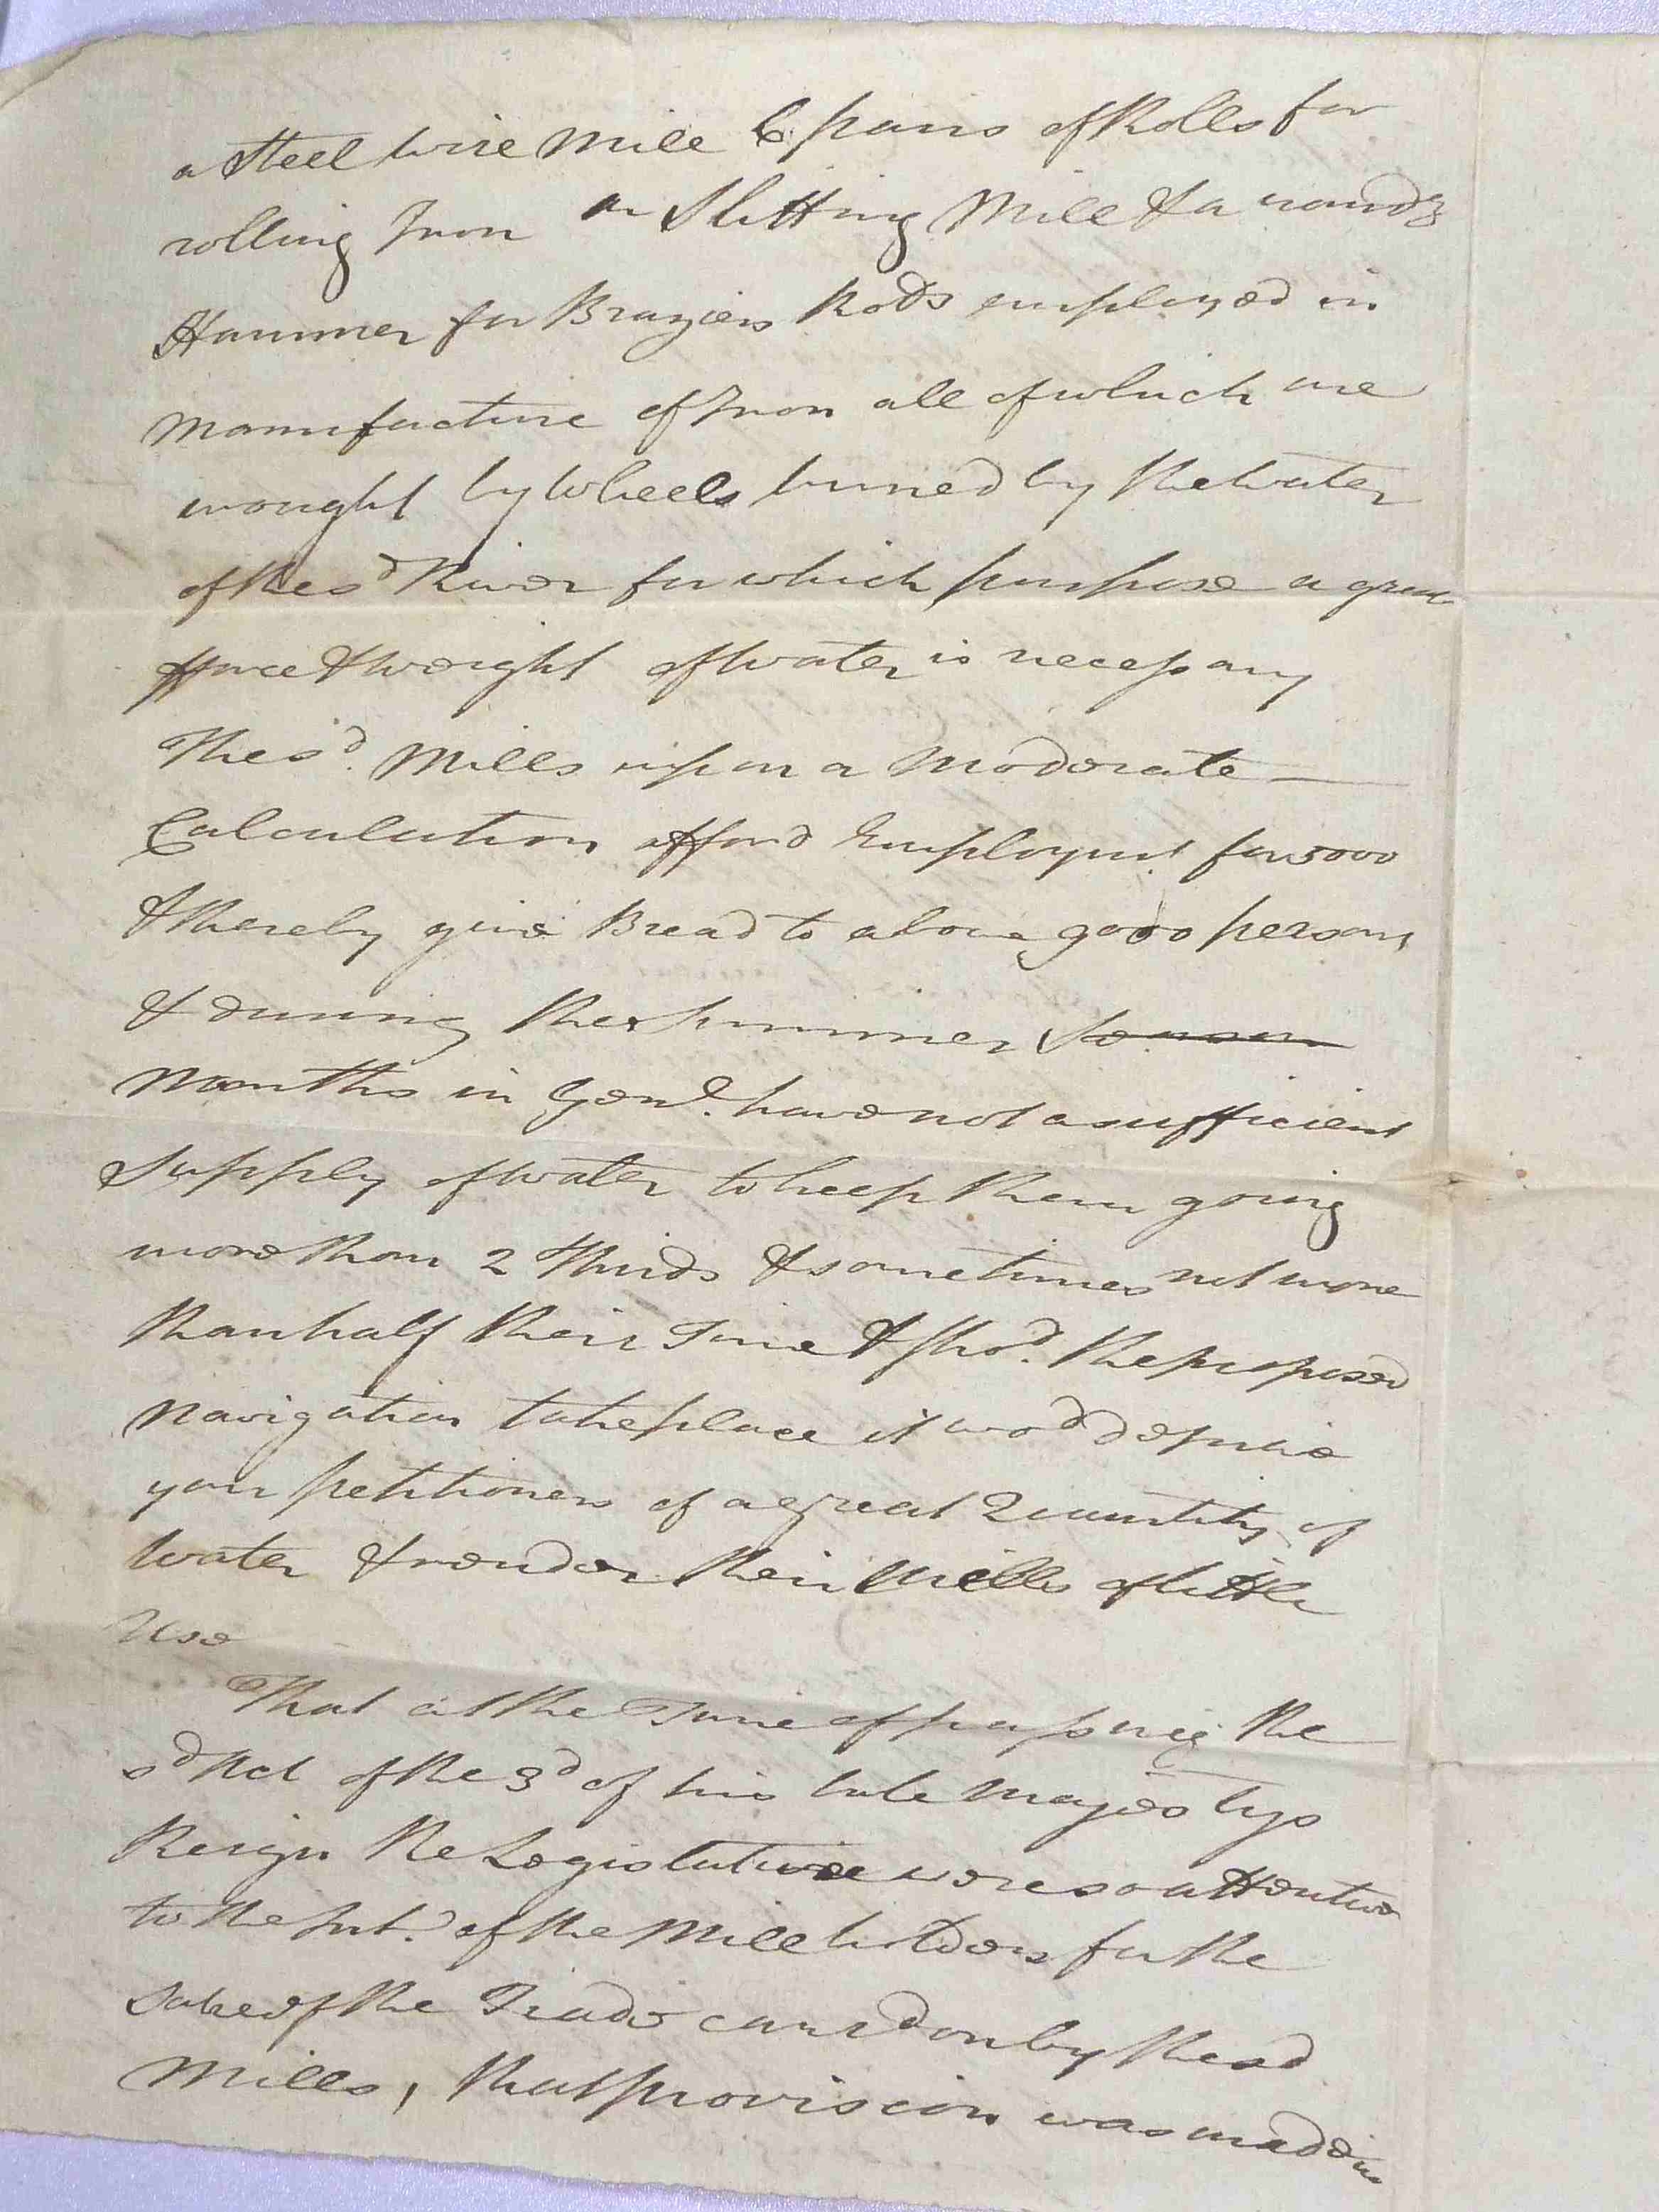 a Steel Wire Mill 6 pairs of Rolls for
rolling Iron a Slitting Mill & a roundg
Hammer for Braziers Rods employed in
Manufacture of Iron all of which are
wrought by Wheels turned by the Water
of the sd River for which purpose a great
fforce & weight of water is necessary
The sd. Mills upon a Moderate —
Calculation afford Employmt. for 5000
& thereby give Bread to above 9000 persons
& during the Summer Season
Months in Genl. have not a sufficient
Supply of water to keep them going
more than 2 Thirds & sometimes not more
than half their Time & shod. the proposed
Navigation take place it wod deprive
your petitioners of a great Quantity of
Water & render their Mills of little
Use
That at the Time of passing the
sd Act of the 3d of his late Majestys
Reign the Legislature were so attentive
to the Int. of the Millholders for the
sake of the Trade carrd on by the sd
Mills, that provision was made in